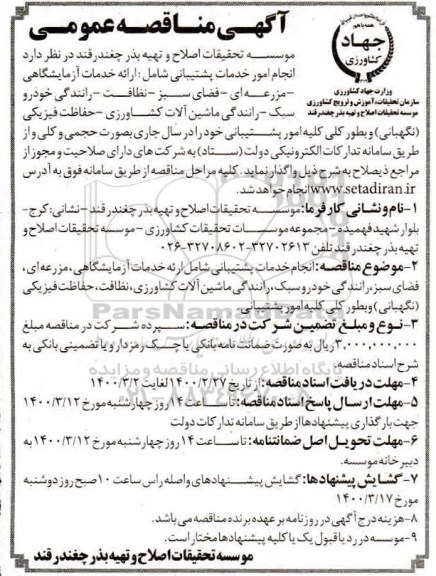 آگهی مناقصه عمومی
جهاد
کشاورزی
وزارت جهاد کشاورزی
سازمان تحقیقات، آموزش و ترویج کشاورزی
موسسه تحقیقات اصلاح و تهیه بذر چغندرقند
موسسه تحقیقات اصلاح و تهیه بذر چغندرقند در نظر دارد
انجام امور خدمات پشتیبانی شامل: ارائه خدمات آزمایشگاهی
-مزرعه ای - فضای سبز - نظافت - رانندگی خودرو
سبک - رانندگی ماشین آلات کشاورزی - حفاظت فیزیکی
(نگهبانی) و بطور کلی کلیه امور پشتیبانی خود را در سال جاری بصورت حجمی و کلی و از
طریق سامانه تدارکات الکترونیکی دولت (ستاد) به شرکت های دارای صلاحیت و مجوز از
مراجع ذیصلاح به شرح ذیل واگذار نماید. کلیه مراحل مناقصه از طریق سامانه فوق به آدرس
www.setadiran.ir انجام خواهد شد.
۱-نام و نشانی کارفرما: موسسه تحقیقات اصلاح و تهیه بذر چغندرقند -نشانی: کرج-
بلوار شهید فهمیده - مجموعه موسسات تحقیقات کشاورزی - موسسه تحقیقات اصلاح و
تهیه بذر چغندر قند تلفن ۳۲۷۰۲۶۱۳-۳۲۷۰۸۶۰۲-۰۲۶
۲-موضوع مناقصه: انجام خدمات پشتیبانی شامل ارئه خدمات آزمایشگاهی، مزرعه ای،
فضای سبز، رانندگی خودرو سبک، رانندگی ماشین آلات کشاورزی، نظافت، حفاظت فیزیکی
(نگهبانی) و بطور کلی کلیه امور پشتیبانی.
۳-نوع و مبلغ تضمین شرکت در مناقصه: سپرده شرکت در مناقصه مبلغ
۳,۰۰۰,۰۰۰,۰۰۰ ریال به صورت ضمانت نامه بانکی یا چک رمزدار و یا تضمینی بانکی به
شرح اسناد مناقصه.
۴-مهلت دریافت اسناد مناقصه: از تاریخ ۱۴۰۰/۲/۲۷ لغایت ۱۴۰۰/۳/۲
۵-مهلت ارسال پاسخ اسناد مناقصه: تا ساعت ۱۴ روز چهارشنبه مورخ ۱۴۰۰/۳/۱۲
جهت بارگذاری پیشنهادها از طریق سامانه تدارکات دولت
۶-مهلت تحویل اصل ضمانتنامه: تا ساعت ۱۴ روز چهارشنبه مورخ ۱۴۰۰/۳/۱۲ به
دبیرخانه موسسه.
۷-گشایش پیشنهادها: گشایش پیشنهادهای واصله راس ساعت ۱۰ صبح روز دوشنبه
مورخ ۱۴۰۰/۳/۱۷
۸-هزینه درج آگهی در روزنامه بر عهده برنده مناقصه می باشد.
۹-موسسه در رد یا قبول یک یا کلیه پیشنهادها مختار است.
موسسه تحقیقات اصلاح و تهیه بذر چغندر قند